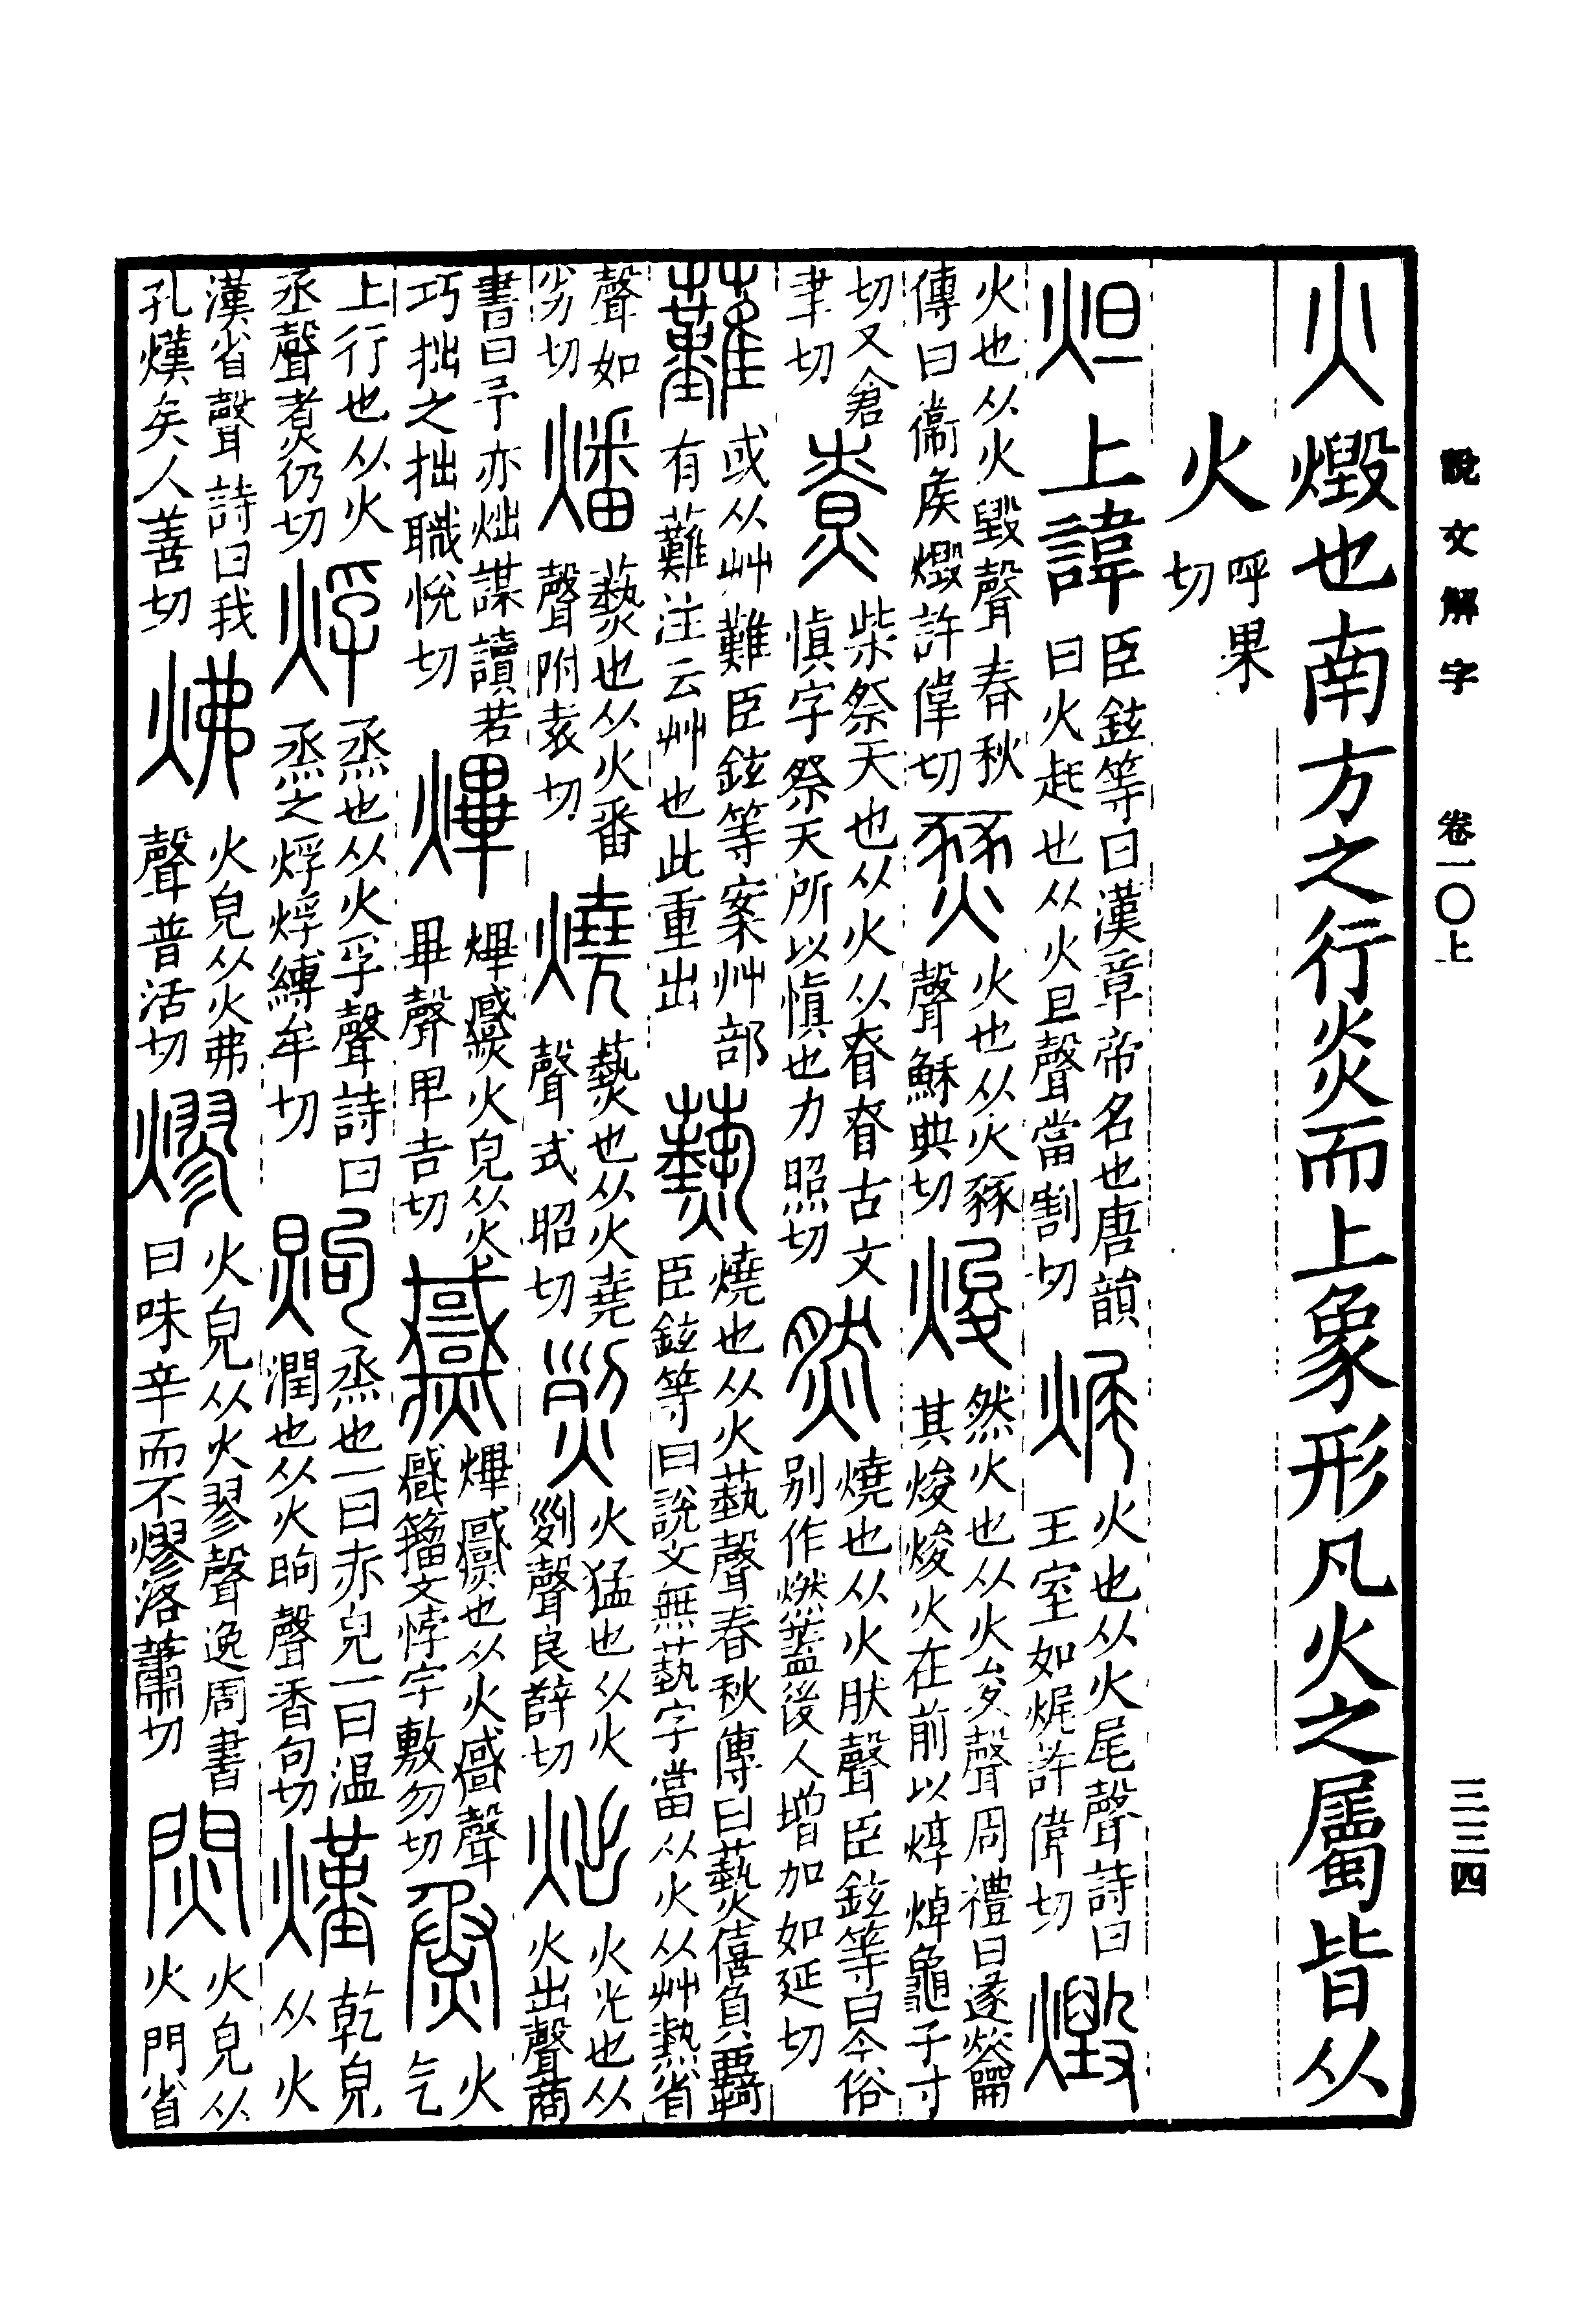 說文解字 卷一〇上 三三四
火燬也南方之行炎而上象形凡火之屬皆从
火呼果切
炟上諱臣鉉等曰漢章帝名也唐韻曰火起也从火旦聲當割切 𤈦火也从火尾聲詩曰王室如𤈦許偉切 燬
火也从火毀聲春秋傳曰衞矦燬許偉切 燹火也从火豩聲穌典切 焌然火也从火夋聲周禮曰遂籥其焌焌火在前以焞焯龜子寸
切又倉聿切 尞柴祭天也从火从昚昚古文愼字祭天所以愼也力照切 然燒也从火肰聲臣鉉等曰今俗別作燃蓋後人增加如延切
䕼或从艸難臣鉉等案艸部有䕼注云艸也此重出 爇燒也从火蓺聲春秋傳曰爇僖負羈臣鉉等曰說文無蓺字當从火从艸熱省
聲如劣切 燔爇也从火番聲附袁切 燒爇也从火堯聲式昭切 烈火猛也从火𠛱聲良薛切 炪火光也从火出聲商
書曰予亦炪謀讀若巧拙之拙職悅切 熚熚火皃从火畢聲卑吉切 熚也从火聲籒文悖字敷勿切 烝火气
上行也从火丞聲煑仍切 烰烝也从火孚聲詩曰烝之烰烰縛牟切 煦烝也一曰赤皃一曰温潤也从火昫聲香句切 熯乾皃从火
漢省聲詩曰我孔熯矣人善切 炥火皃从火弗聲普活切 熮火皃从火翏聲逸周書曰味辛而不熮洛蕭切 焛火皃从火門省